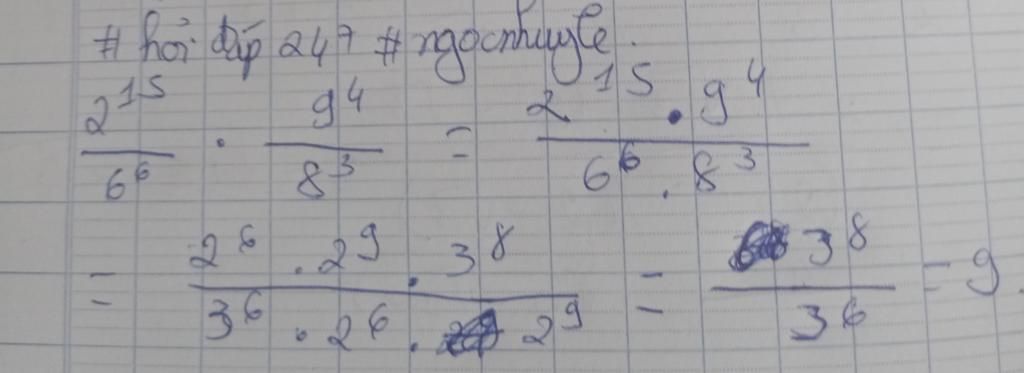 # hỏi đáp 247 # ngocnhuyle.
2^15 / 6^6 . 9^4 / 8^3 = 2^15 . 9^4 / 6^6 . 8^3
= 2^6 . 2^9 . 3^8 / 3^6 . 2^6 . 2^9 = 3^8 / 3^6 = 9.